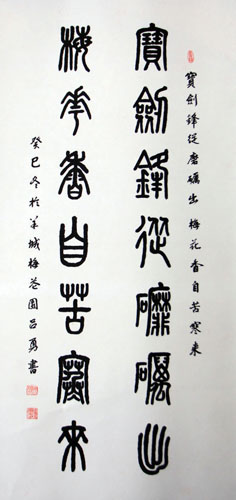 寶劍鋒從磨礪出
梅花香自苦寒來
寶劍鋒從磨礪出 梅花香自苦寒來
癸巳冬於羊城梅花園呂勇書